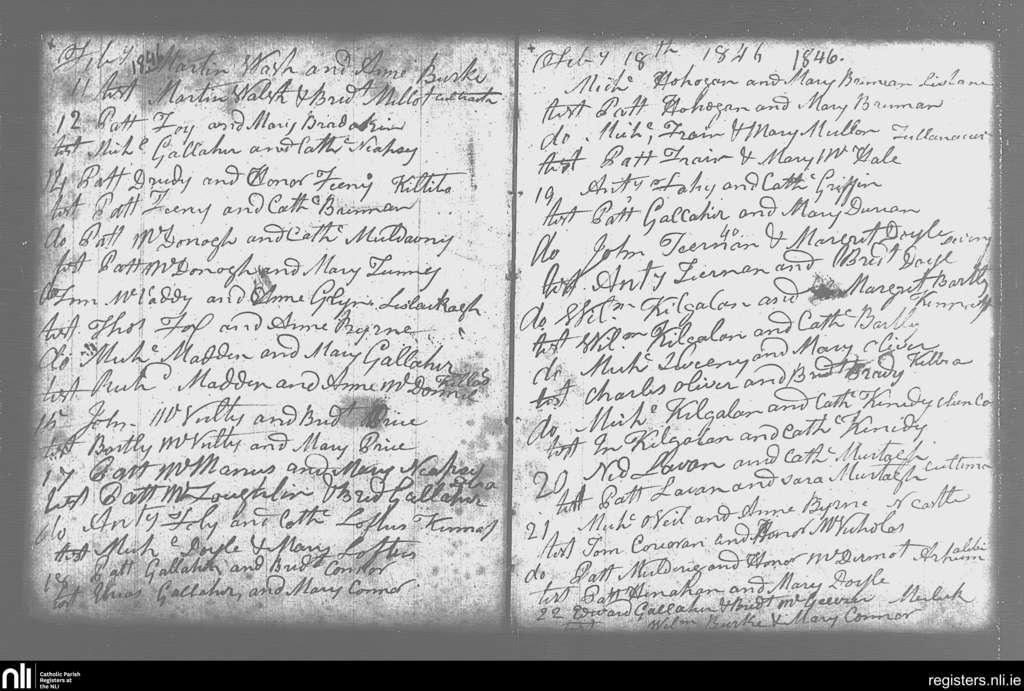 Feby 1846 Martin Wash and Anne Burke
11 test Martin Walsh & Bridt Millot
12 Patt Foy and Mary
test Michl Gallaher and Cathe Neapsy
14 Patt Drudy and Honor Feeny Killita
test Patt Feeny and Cathe Brinnan
do Patt McDonogh and Cathe Muldavny
test Patt McDonogh and Mary Tunney
do Inn McCaddy and Anne Glynn
test Thos Foy and Anne Byrne
do Miche Madden and Mary Gallaher
test Richd Madden and Anne McDonnel
15 John McNulty and Bridt Price
test Bartly McNulty and Mary Price
17 Patt McManus and Mary Neapsy
test Patt McLoughlin & Brid Gallaher
do Anty Fely and Cathe Loftus
test Miche Doyle & Mary Loftus
18 Patt Gallaher and Bridt Connor
test Gallaher and Mary Connor
Feby 18th 1846 1846.
Miche Hohogan and Mary Brinnan
test Patt Hohogan and Mary Brinnan
do Miche Frain & Mary Mullon
test Patt Frain & Mary McHale
19 Anty Fahy and Cathe Griffin
test Patt Gallahir and Mary Durcan
do John Teernan & Margrit Doyle
test Anty Tiernan and Bridt Doyle
do Wilm Kilgalon and Margrit Bartly
test Wilm Kilgalon and Cathe Bartly
do Miche Sweeny and Mary Oliver
test Charles Oliver and Bridt Brady
do Miche Kilgalon and Cathe Kenedy
test Jn Kilgalon and Cathe Kenedy
20 Ned Lavan and Cathe Murtagh
test Patt Lavan and Sara Murtagh
21 Miche ONeil and Anne Byrne
test Tom Corcoran and Honor McNicholas
do Patt Mulderig and Honor McDermot
test Patt Henahan and Mary Doyle
22 Edward Gallaher & Bridt Meelick
test Wilm Burke & Mary Connor
nli Catholic Parish Registers at the NLI
registers.nli.ie